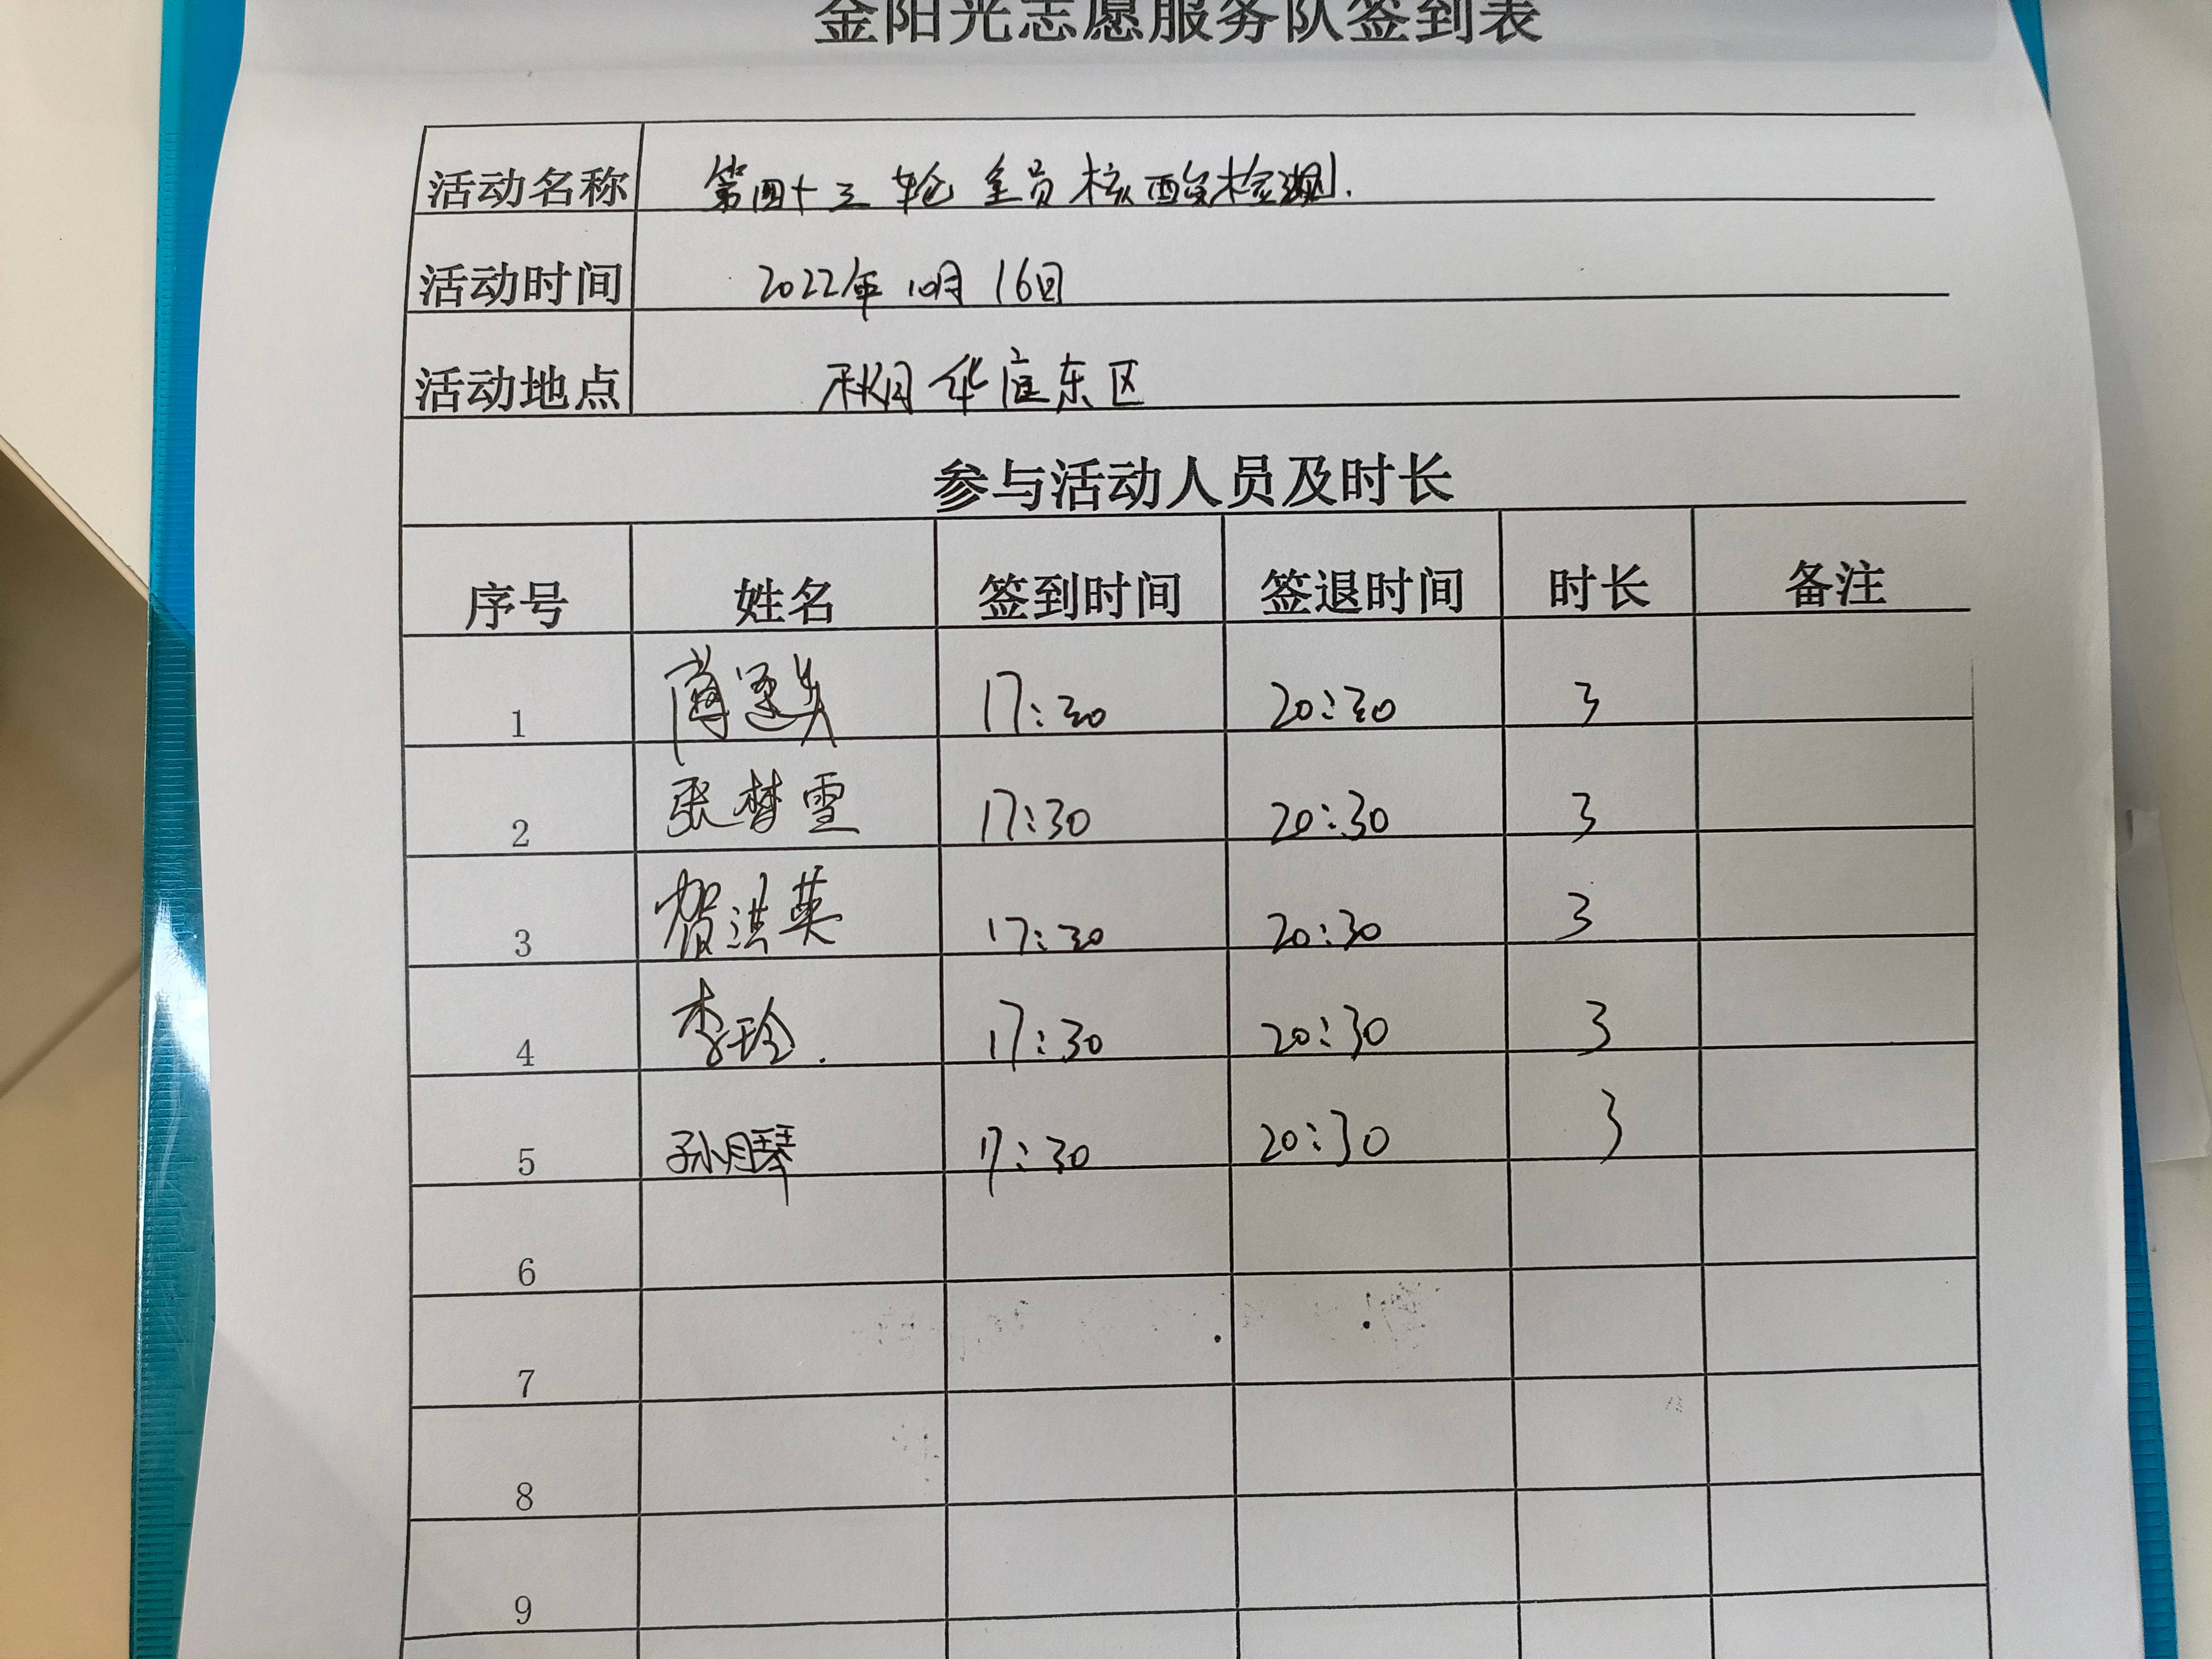 金阳光志愿服务队签到表
活动名称 第四十三轮全员核酸检测.
活动时间 2022年10月16日
活动地点 秋月华庭东区
参与活动人员及时长
序号 姓名 签到时间 签退时间 时长 备注
1 17:30 20:30 3
2 张梦雪 17:30 20:30 3
3 贺洪英 17:30 20:30 3
4 李玲. 17:30 20:30 3
5 孙月琴 17:30 20:30 3
6
7
8
9